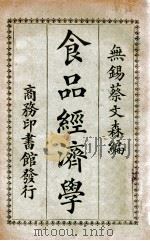 無錫蔡文森編
食品經濟學
商務印書館發行
www.mtoou.info